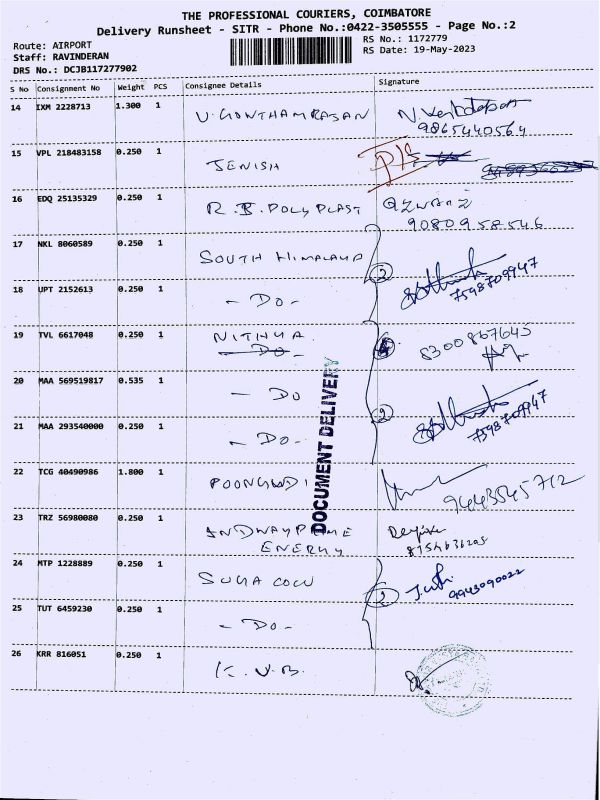 THE PROFESSIONAL COURIERS, COIMBATORE
Delivery Runsheet - SITR - Phone No.:0422-3505555 - Page No.:2
Route: AIRPORT
Staff: RAVINDERAN
DRS No.: DCJB117277902
RS No.: 1172779
RS Date: 19-May-2023
S No Consignment No Weight PCS Consignee Details Signature
14 IXM 2228713 1.300 1 V. GOWTHAMRASAN
9865440564
15 VPL 218483158 0.250 1 JENISH
16 EDQ 25135329 0.250 1 R.B. POLYPLAST
9080958546
17 NKL 8060589 0.250 1 SOUTH HIMALAYA
2
18 UPT 2152613 0.250 1 - DO -
7598709947
19 TVL 6617048 0.250 1 NITHYA
DO -
8300867645
20 MAA 569519817 0.535 1 - DO
2
21 MAA 293540000 0.250 1 - DO -
7598709947
22 TCG 40490986 1.800 1
9443545712
23 TRZ 56980080 0.250 1
ENERGY
24 MTP 1228889 0.250 1
9943090022
2
25 TUT 6459230 0.250 1 - DO -
26 KRR 816051 0.250 1 K.V.B.
DOCUMENT DELIVERY